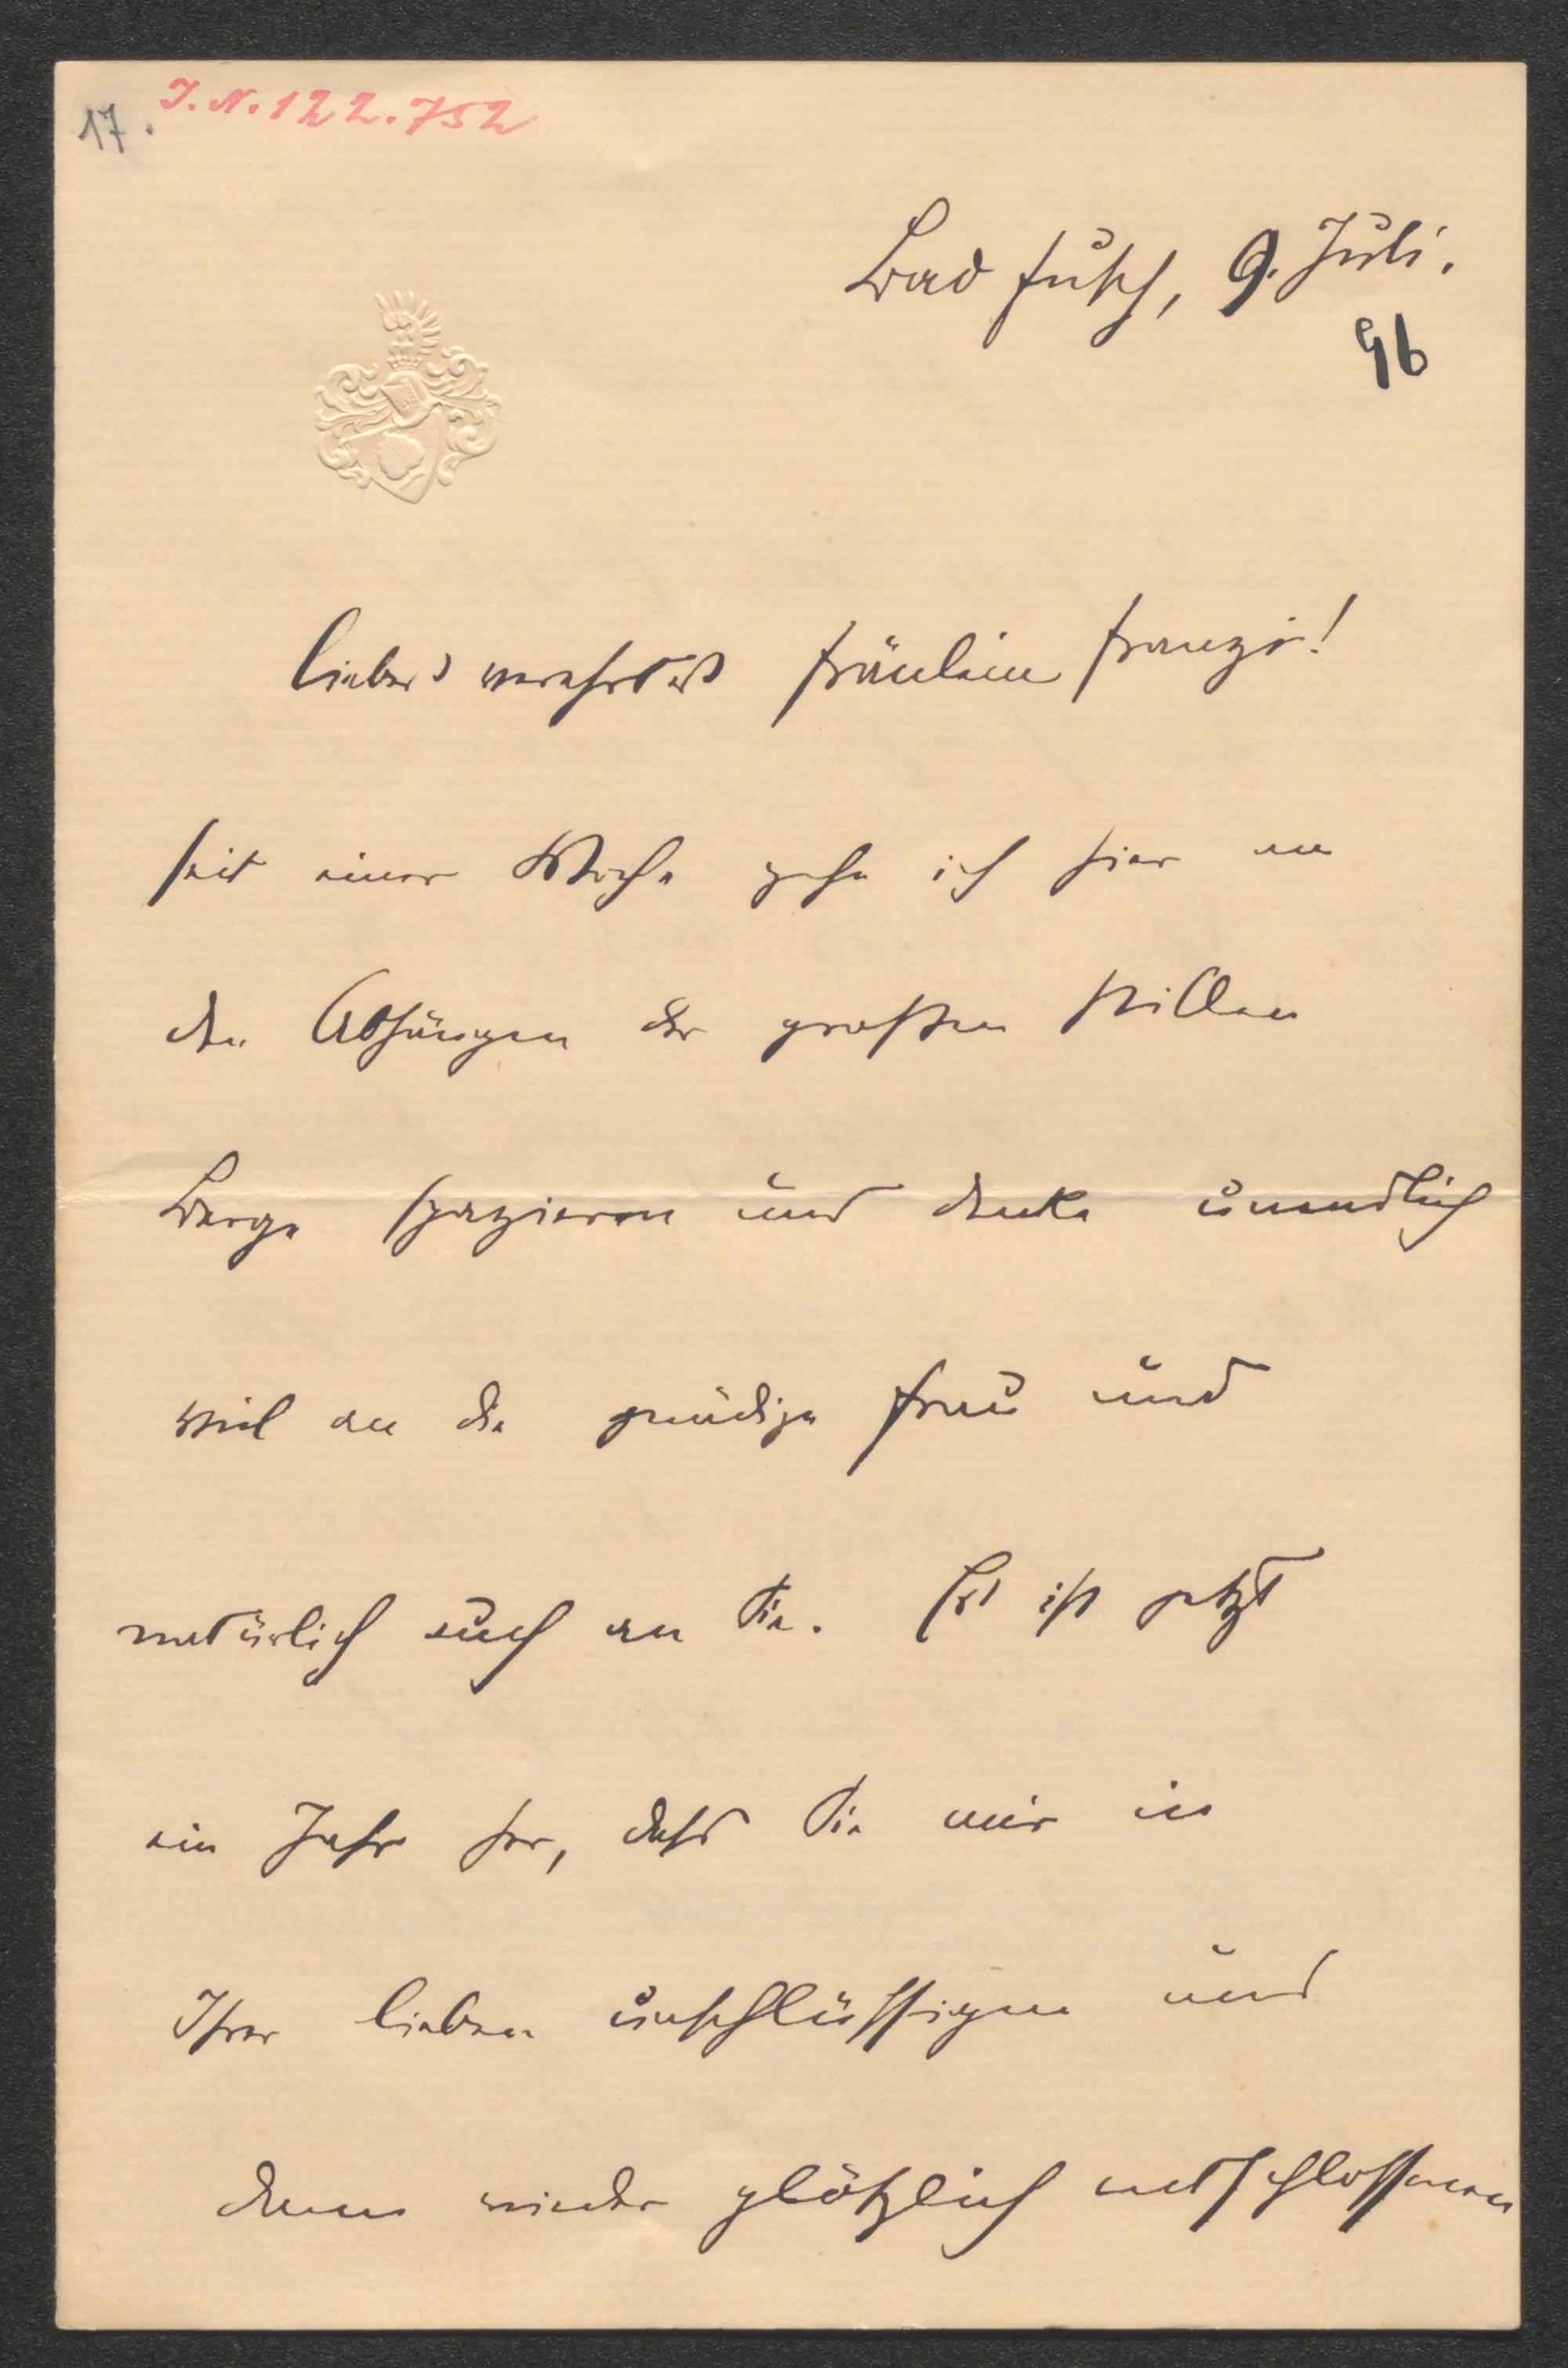 17. I.N. 122.752
Bad Fusch, 9. Juli.
96
liebes verehrtes Fräulein Franzi!
seit einer Woche gehe ich hier an
den Abhängen der großen stillen
Berge spazieren und denke unendlich
viel an die gnädige Frau und
natürlich auch an Sie. Es ist jetzt
ein Jahr her, dass Sie mir in
Ihrer lieben unschlüssigen und
dann wieder plötzlich entschlossenen